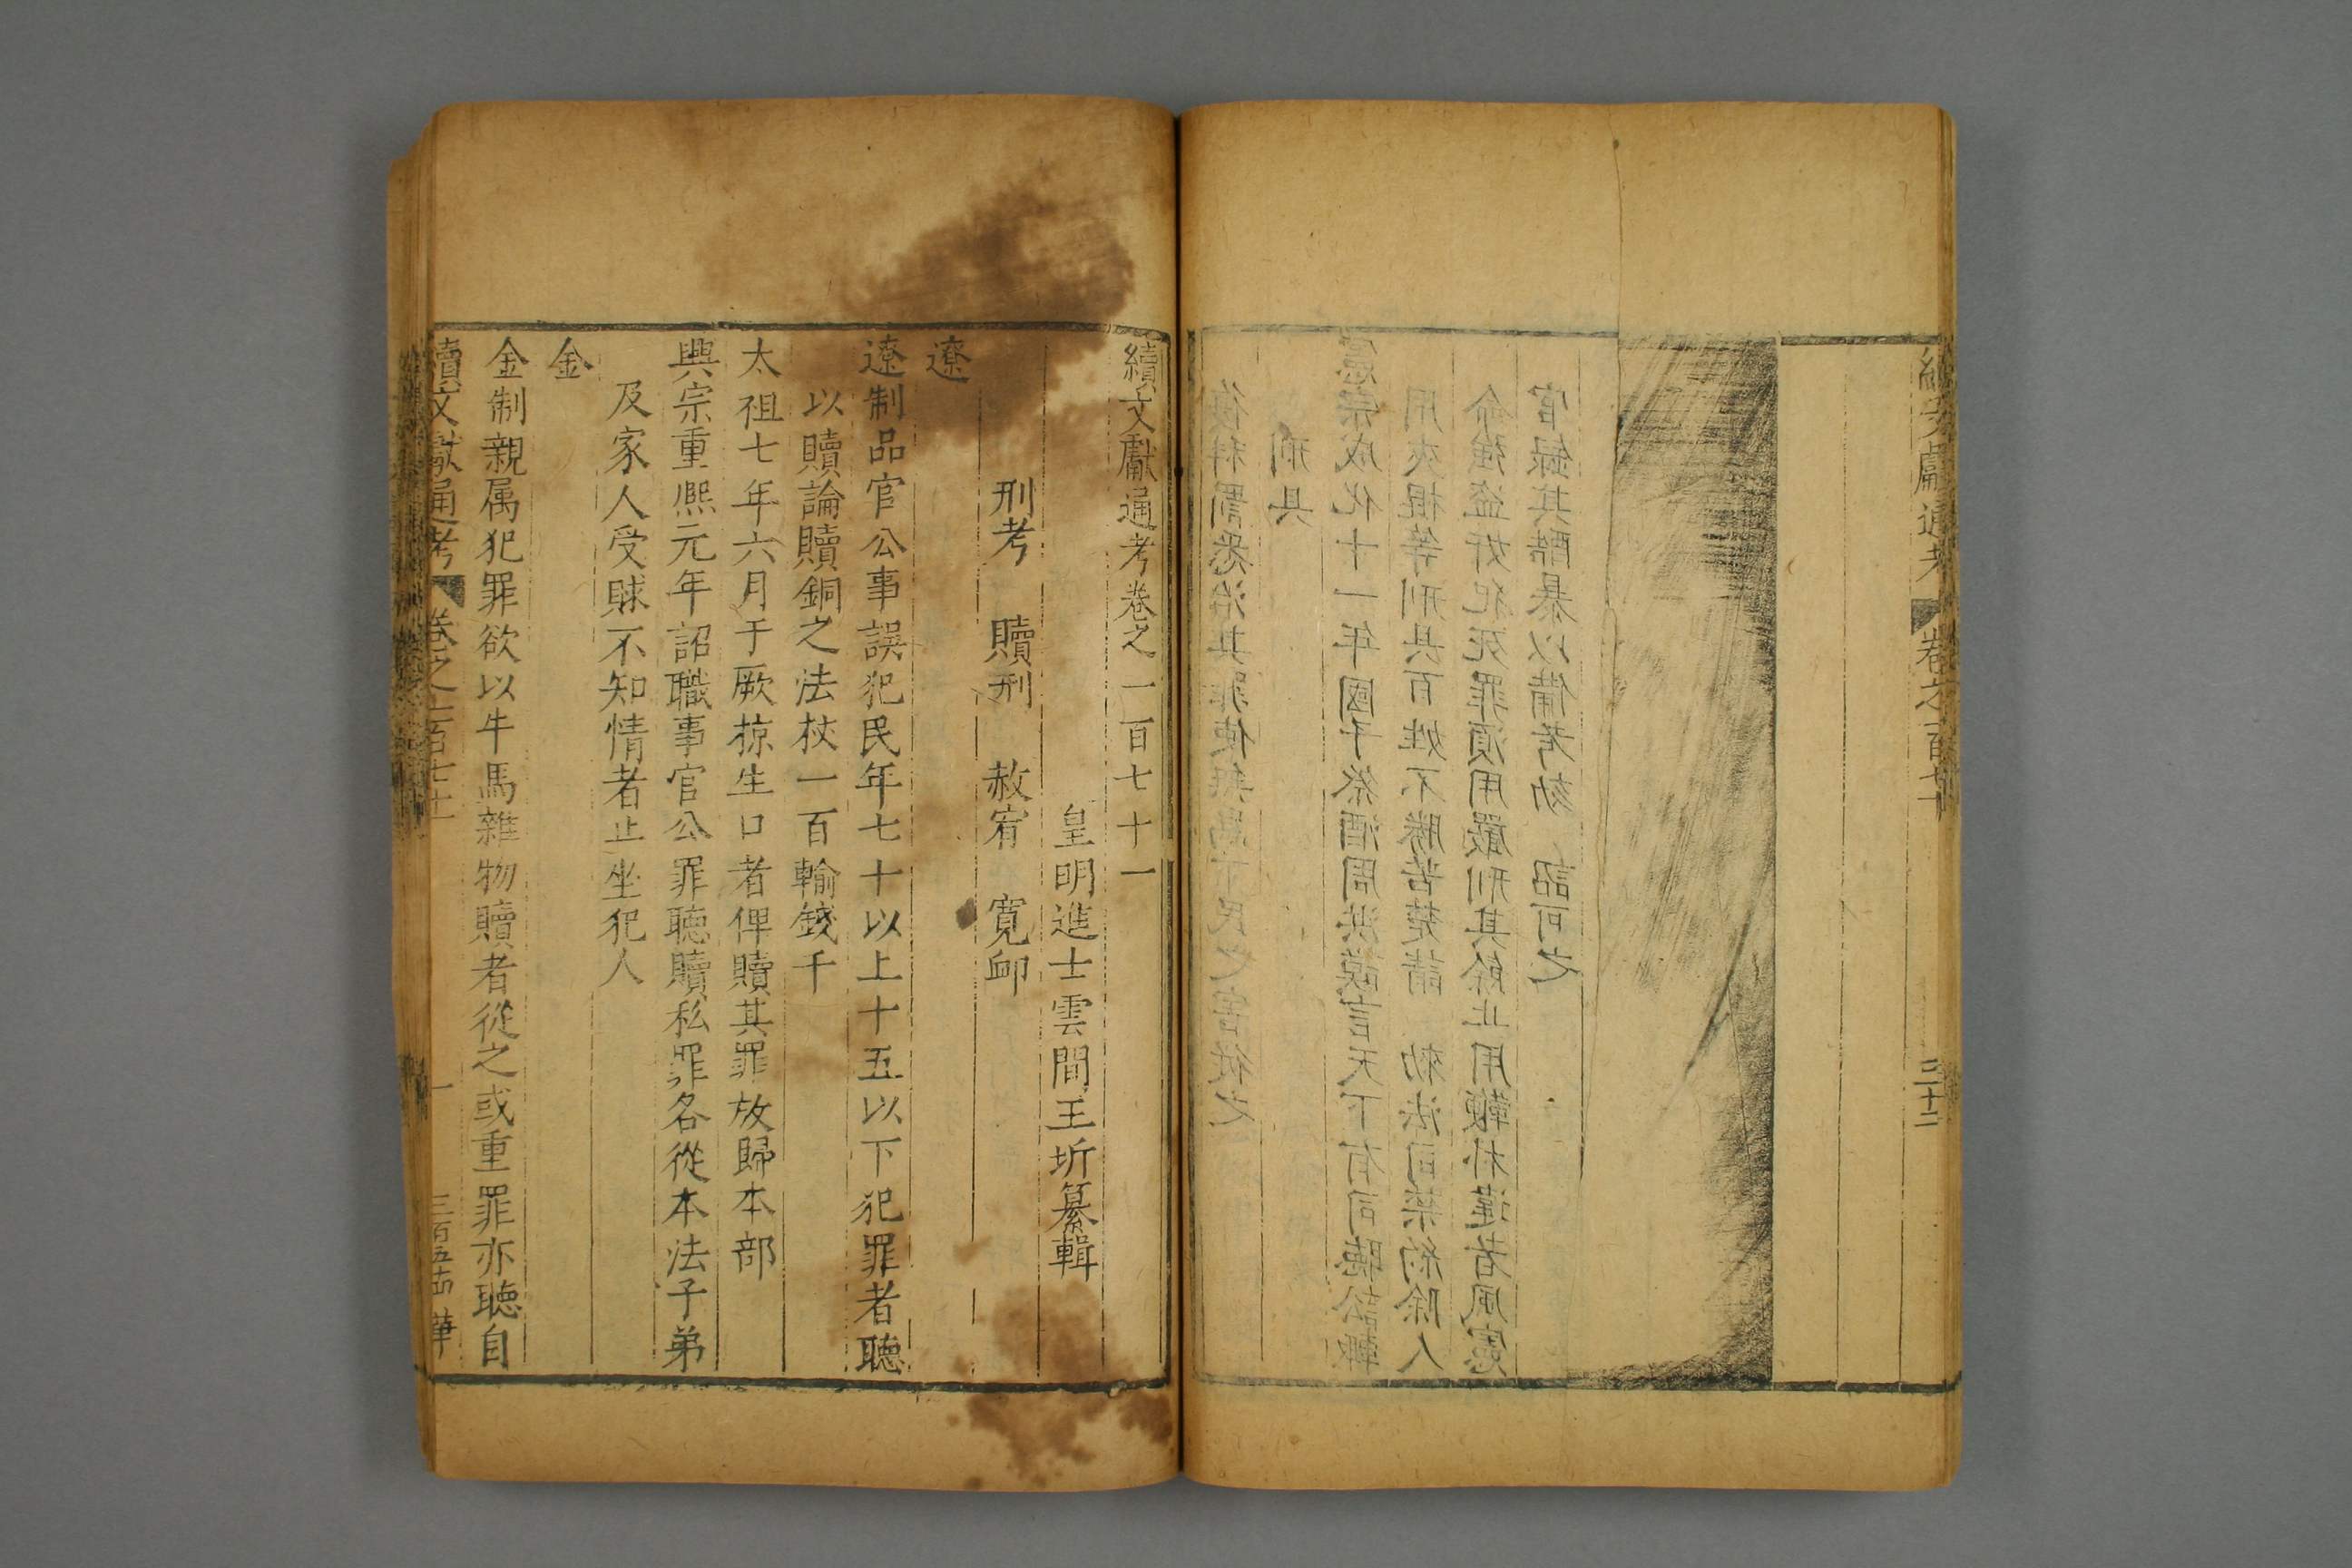 續文獻通考 卷之百七十 三十二
復科罰悉治其罪使無為小民之害從之
刑具
憲宗成化十一年國子祭酒周洪謨言天下有司聽訟輒
用夾棍等刑具百姓不勝苦楚請 勑法司禁約除人
命強盜奸犯死罪須用嚴刑其餘止用鞭朴違者風憲
官録其酷暴以備考劾 詔可之
續文獻通考卷之一百七十一
皇明進士雲間王圻纂輯
刑考 贖刑 赦宥 寬卹
遼
遼制品官公事誤犯民年七十以上十五以下犯罪者聽
以贖論贖銅之法杖一百輸錢千
太祖七年六月于厥掠生口者俾贖其罪放歸本部
興宗重熙元年詔職事官公罪聽贖私罪各從本法子弟
及家人受賕不知情者止坐犯人
金
金制親属犯罪欲以牛馬雜物贖者從之或重罪亦聽自
續文獻通考 卷之一百七十一 一 三百五十四 華